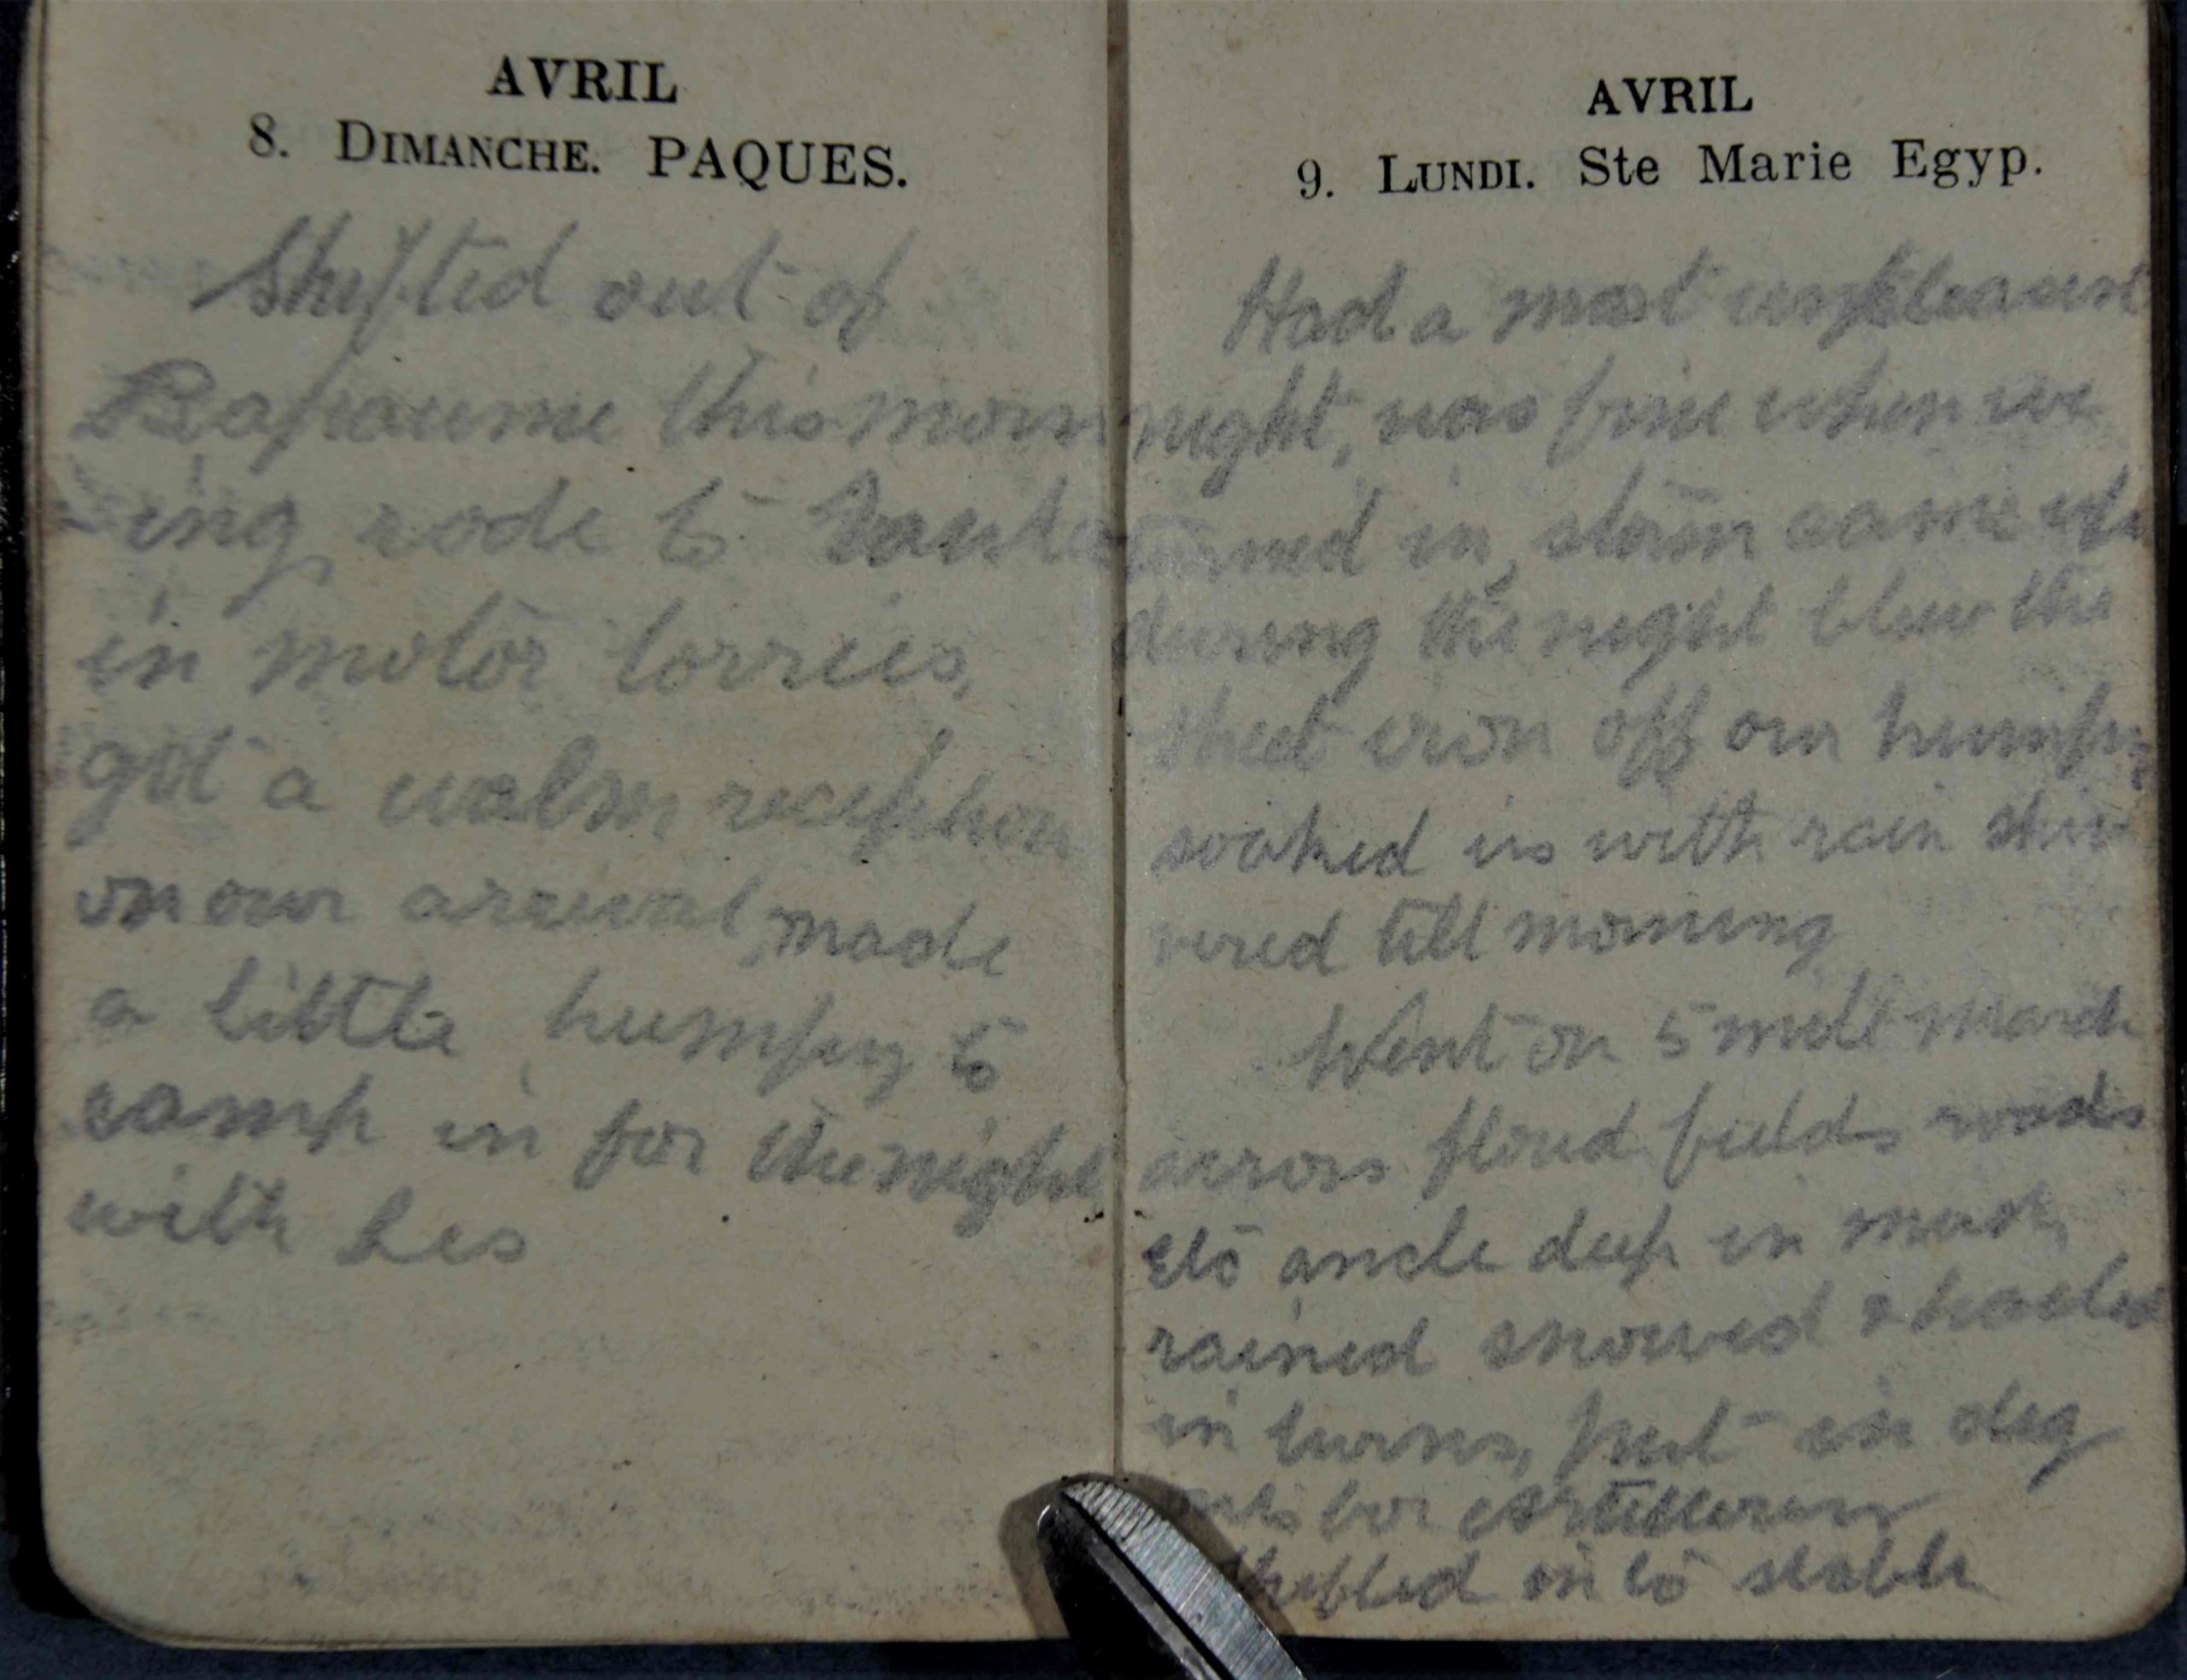 AVRIL
8. DIMANCHE. PAQUES.
Shifted out of
Bapaume this morn
ing rode to
in motor lorries,
got a walm reception
on our arrival, made
a little humpy to
camp in for the night
with Les
AVRIL
9. LUNDI. Ste Marie Egyp.
Had a most unpleasant
night, was fine when we
turned in, storm came up
during the night blew the
sheet iron off our humpy
soaked us with rain shiv
vered till morning
Went on 5 mile march
across fields roads
etc ancle deep in mud,
rained snowed & hailed
in turns, put in dig
for artillery
shifted in to stable